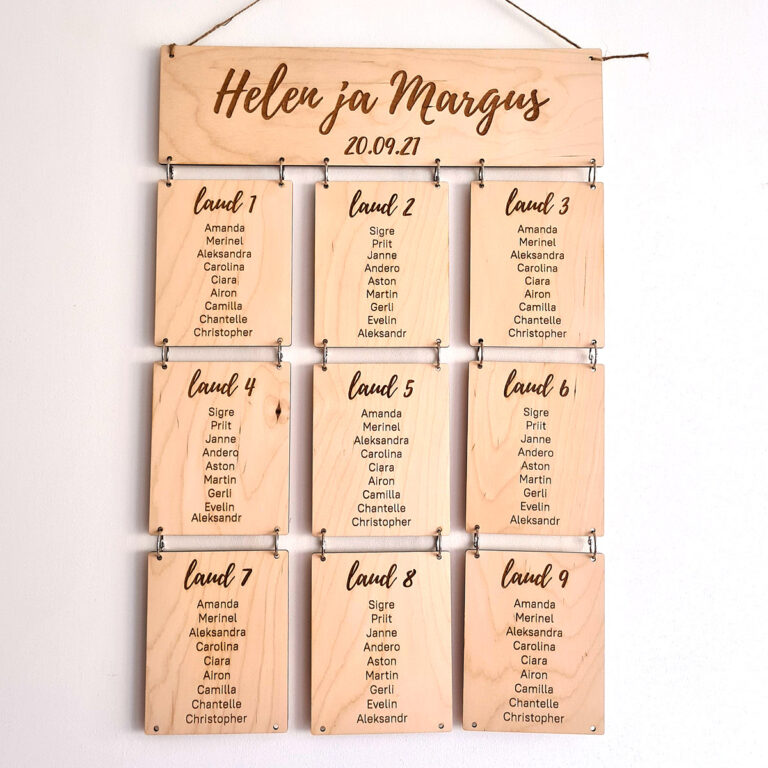 Helen ja Margus
20.09.21
laud 1
Amanda
Merinel
Aleksandra
Carolina
Ciara
Airon
Camilla
Chantelle
Christopher
laud 2
Sigre
Priit
Janne
Andero
Aston
Martin
Gerli
Evelin
Aleksandr
laud 3
Amanda
Merinel
Aleksandra
Carolina
Ciara
Airon
Camilla
Chantelle
Christopher
laud 4
Sigre
Priit
Janne
Andero
Aston
Martin
Gerli
Evelin
Aleksandr
laud 5
Amanda
Merinel
Aleksandra
Carolina
Ciara
Airon
Camilla
Chantelle
Christopher
laud 6
Sigre
Priit
Janne
Andero
Aston
Martin
Gerli
Evelin
Aleksandr
laud 7
Amanda
Merinel
Aleksandra
Carolina
Ciara
Airon
Camilla
Chantelle
Christopher
laud 8
Sigre
Priit
Janne
Andero
Aston
Martin
Gerli
Evelin
Aleksandr
laud 9
Amanda
Merinel
Aleksandra
Carolina
Ciara
Airon
Camilla
Chantelle
Christopher